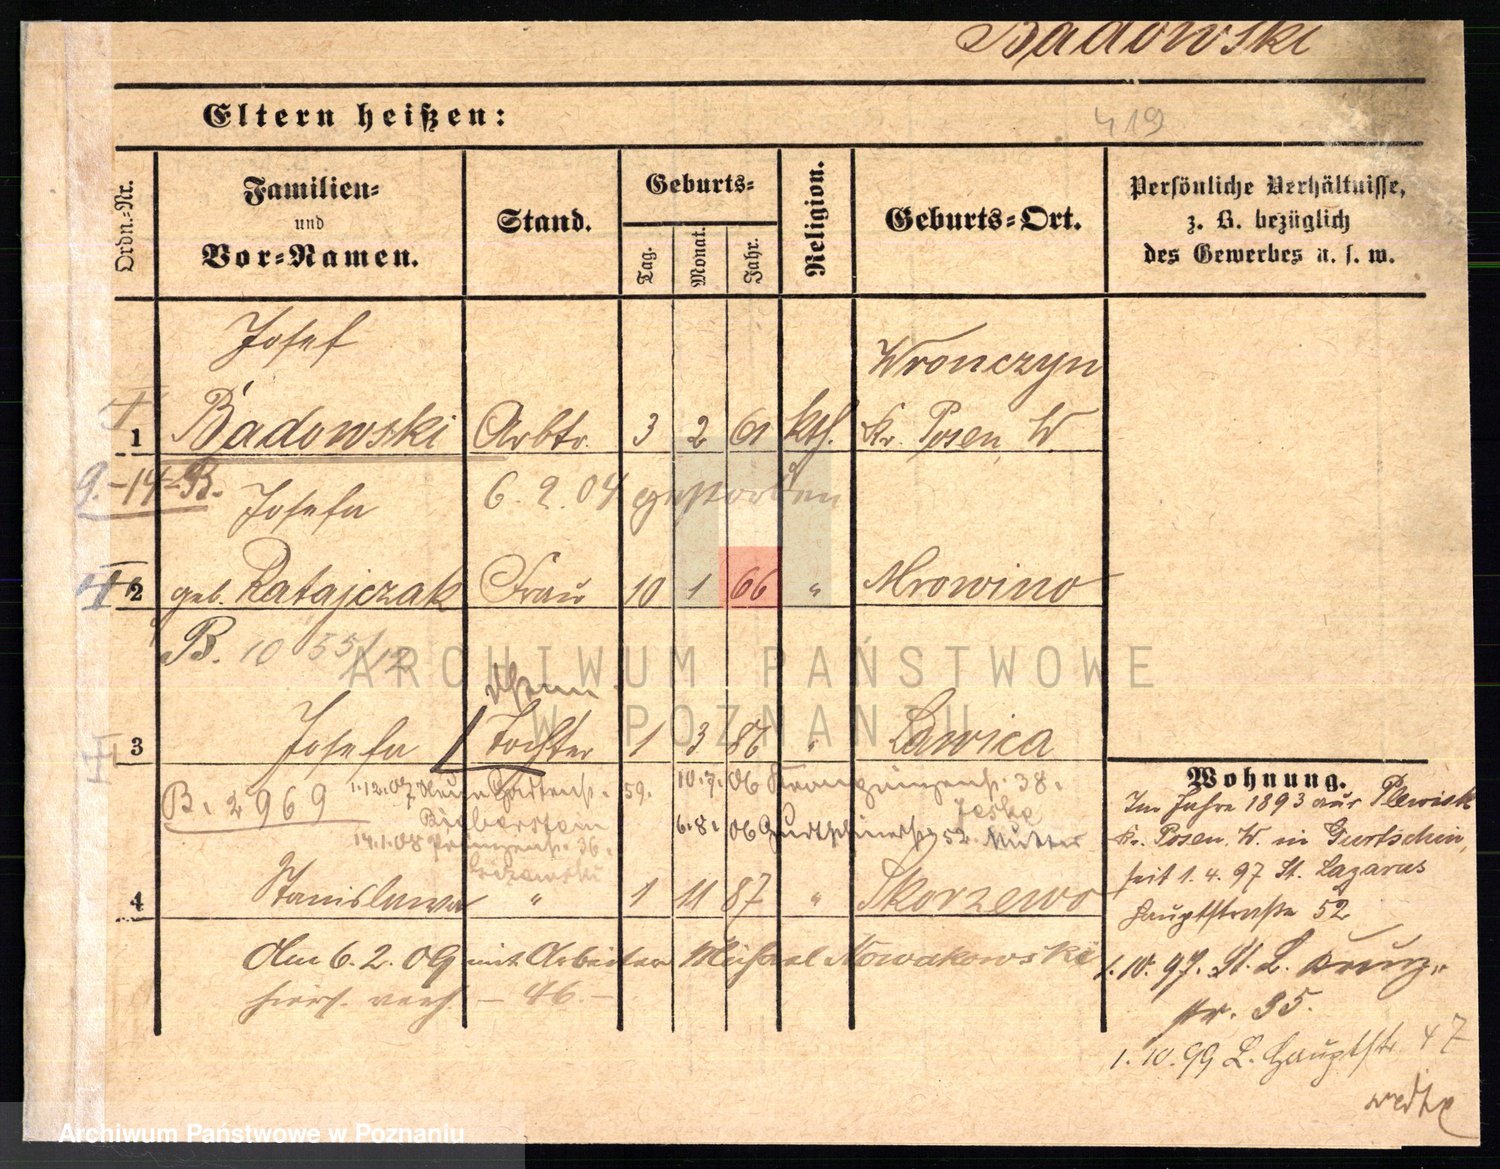 Badowski
Eltern heißen:
419
Ordn.-Nr.
Familien-
und
Vor-Namen.
Stand.
Geburts-
Tag.
Monat.
Jahr.
Religion.
Geburts-Ort.
Persönliche Verhältnisse,
z. B. bezüglich
des Gewerbes u. s. w.
Josef Wronczyn
1 Badowski Arbtr. 3 2 61 kth. Kr. Posen W
9.-14-B. 6. 2. 04 gestorben
Josefa
2 geb. Ratajczak Frau 10 1 66 " Mrowino
B. 10 55/12
ARCHIWUM PAŃSTWOWE
W POZNANIU
3 Josefa Tochter 1 3 86 " Lawica
B. 2969 1.12.07 Neue Gartenst. 59. 10.7.06 Kronprinzenst. 38.
Jeske
Bieberstein 6.8.06 Gurtschinerst 52. Mutter
14.1.08 Prinzenst. 36.
4 Stanislawa " 1 11 87 " Skorzewo
Am 6. 2. 09 mit Arbeiter Michael Nowakowski
hiers. verh. - 46. -
Wohnung.
Im Jahre 1893 aus Plewisk
Kr. Posen W. in Gurtschin,
seit 1. 4. 97 St. Lazarus
Hauptstraße 52
1. 10. 97. St. L. Prinz-
str. 35.
1. 10. 99 L. Hauptstr. 47
Archiwum Państwowe w Poznaniu